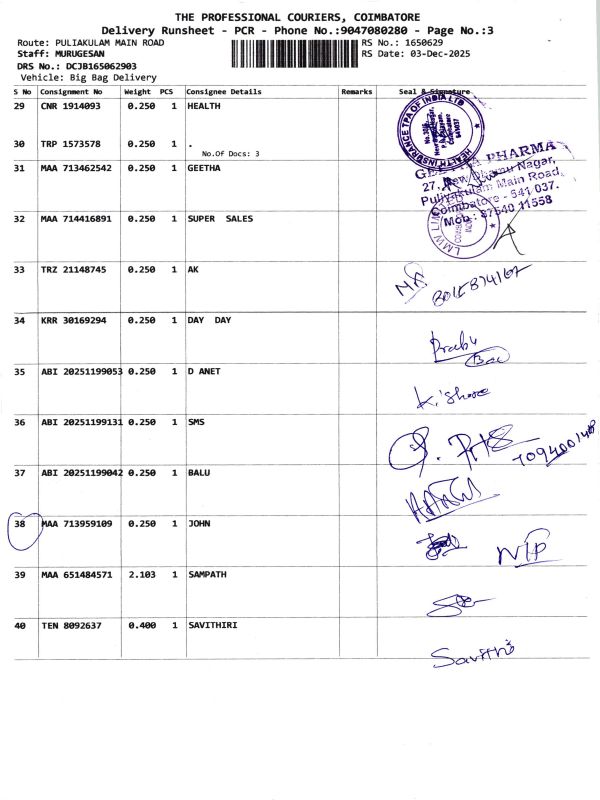 THE PROFESSIONAL COURIERS, COIMBATORE
Delivery Runsheet - PCR - Phone No.:9047080280 - Page No.:3
Route: PULIAKULAM MAIN ROAD RS No.: 1650629
Staff: MURUGESAN RS Date: 03-Dec-2025
DRS No.: DCJB165062903
Vehicle: Big Bag Delivery
S No Consignment No Weight PCS Consignee Details Remarks Seal & Signature
29 CNR 1914093 0.250 1 HEALTH
HEALTH INSURANCE TPA OF INDIA LTD
30 TRP 1573578 0.250 1 .
No.Of Docs: 3
31 MAA 713462542 0.250 1 GEETHA
PHARMA
27, New Nagar,
Puliyakulam Main Road,
Coimbatore - 641 037.
Mob: 87540 11558
32 MAA 714416891 0.250 1 SUPER SALES
LMW LIMITED
33 TRZ 21148745 0.250 1 AK
34 KRR 30169294 0.250 1 DAY DAY
Prabu
35 ABI 20251199053 0.250 1 D ANET
Kishore
36 ABI 20251199131 0.250 1 SMS
37 ABI 20251199042 0.250 1 BALU
38 MAA 713959109 0.250 1 JOHN
NIP
39 MAA 651484571 2.103 1 SAMPATH
40 TEN 8092637 0.400 1 SAVITHIRI
Savithi